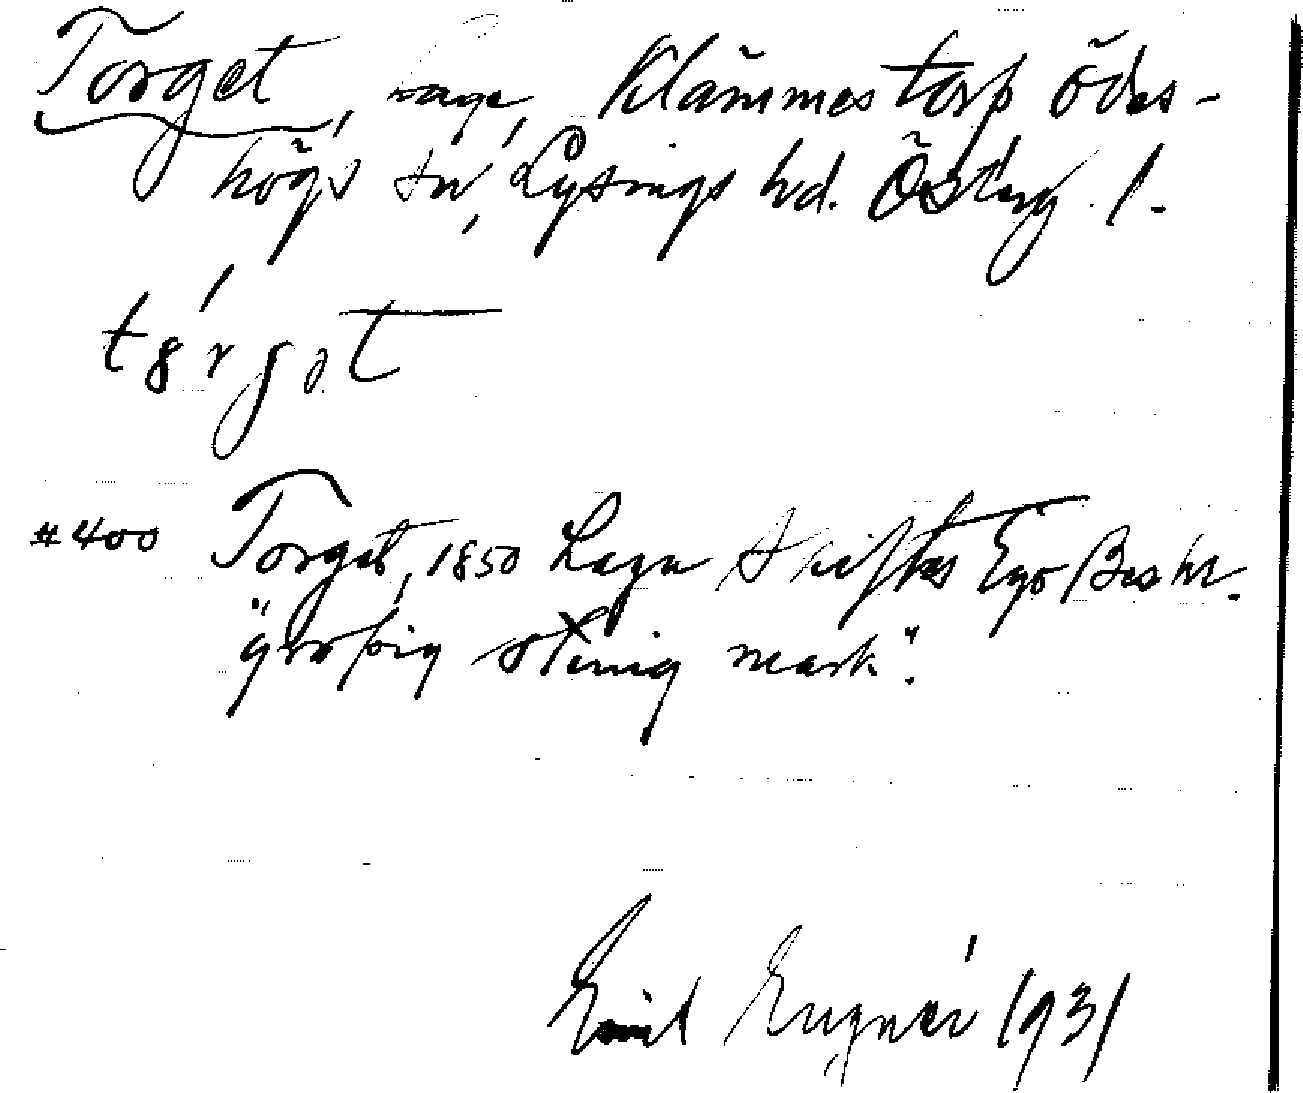 Torget, hage, Klämmestorp Ödes-
högs sn, Lysings hd. Östergl.
tǫrgət
#400 Torget, 1850 Laga Skiftes Ego Beskr.
"gropig stenig mark".
Emil 1931